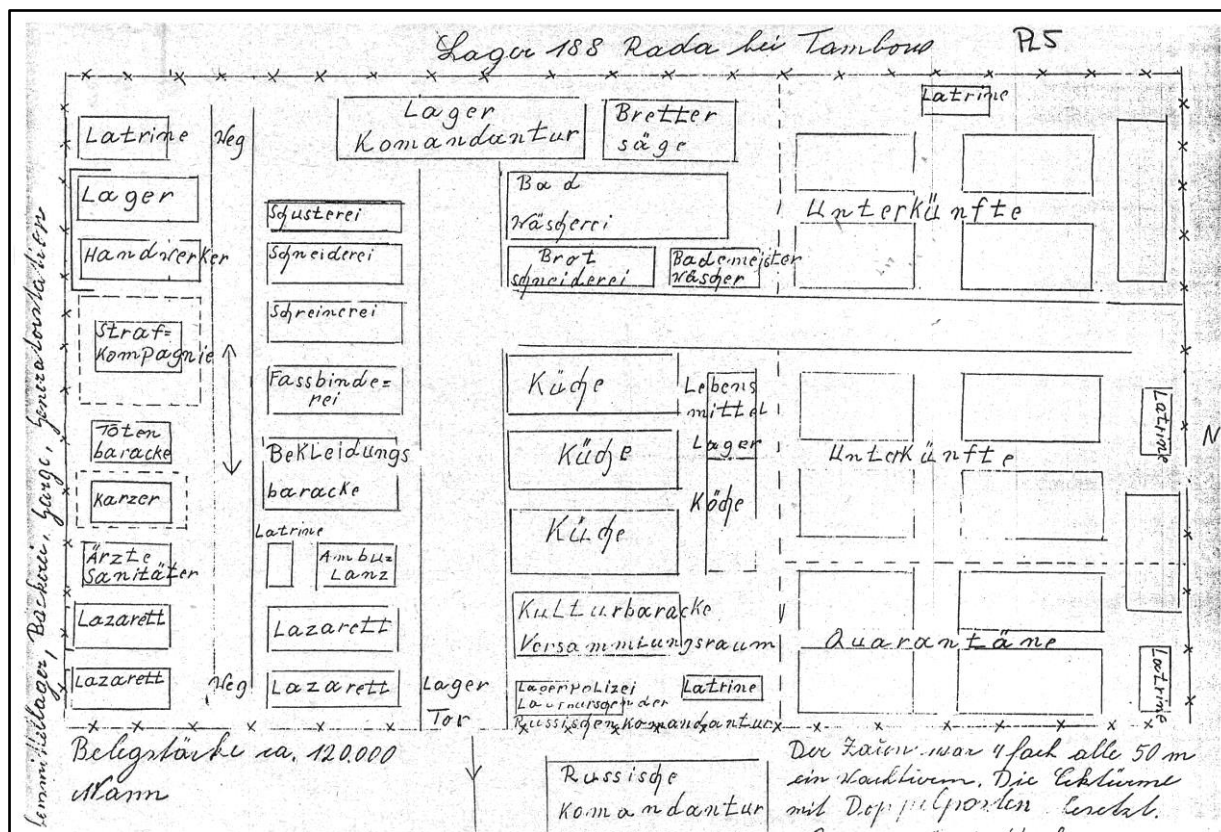 Lager 188 Rada bei Tambow
PL5
Latrine
Weg
Lager
Komandantur
Bretter
säge
Latrine
Lager
Handwerker
Straf=
Kompagnie
Toten
baracke
Karzer
Ärzte
Sanitäter
Lazarett
Lazarett
Weg
Schusterei
Schneiderei
Schreinerei
Fassbinde=
rei
BeKLeidungs
baracke
Latrine
Ambu=
Lanz
Lazarett
Lazarett
Lager
Tor
Bad
Wäscherei
Brot
schneiderei
Bademeister
Wäscher
Küche
Küche
Küche
Lebens
mittel
Lager
Köche
Kulturbaracke
Versammlungsraum
Lagerpolizei
Laufburschen der
Russischen Komandantur
Latrine
Unterkünfte
Unterkünfte
Latrine
N
Quarantäne
Latrine
Bäckerei, Garage, Generatorstation
Belegstärke ca. 120.000
Mann
Russische
Komandantur
Der Zaun war 4 fach alle 50 m
ein Wachturm. Die Ecktürme
mit Doppelposten besetzt.